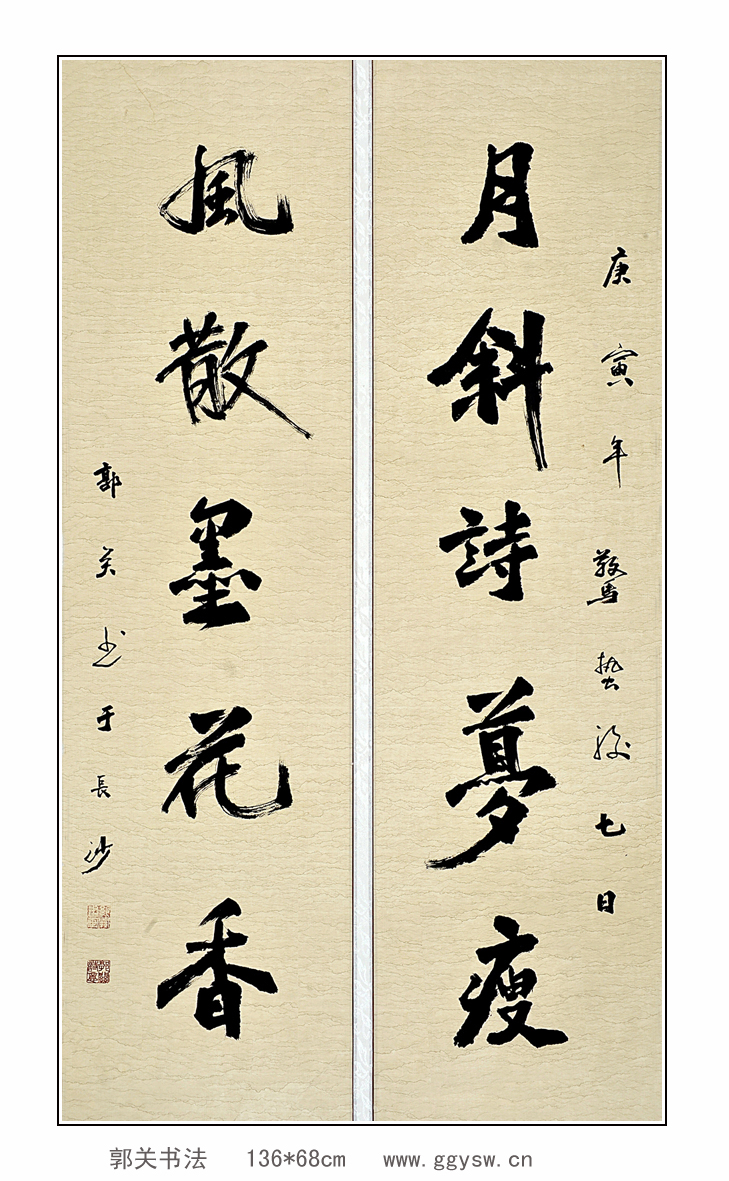 庚寅年驚蟄後七日
月斜詩夢瘦
風散墨花香
郭关书于長沙
郭关书法 136*68cm www.ggysw.cn